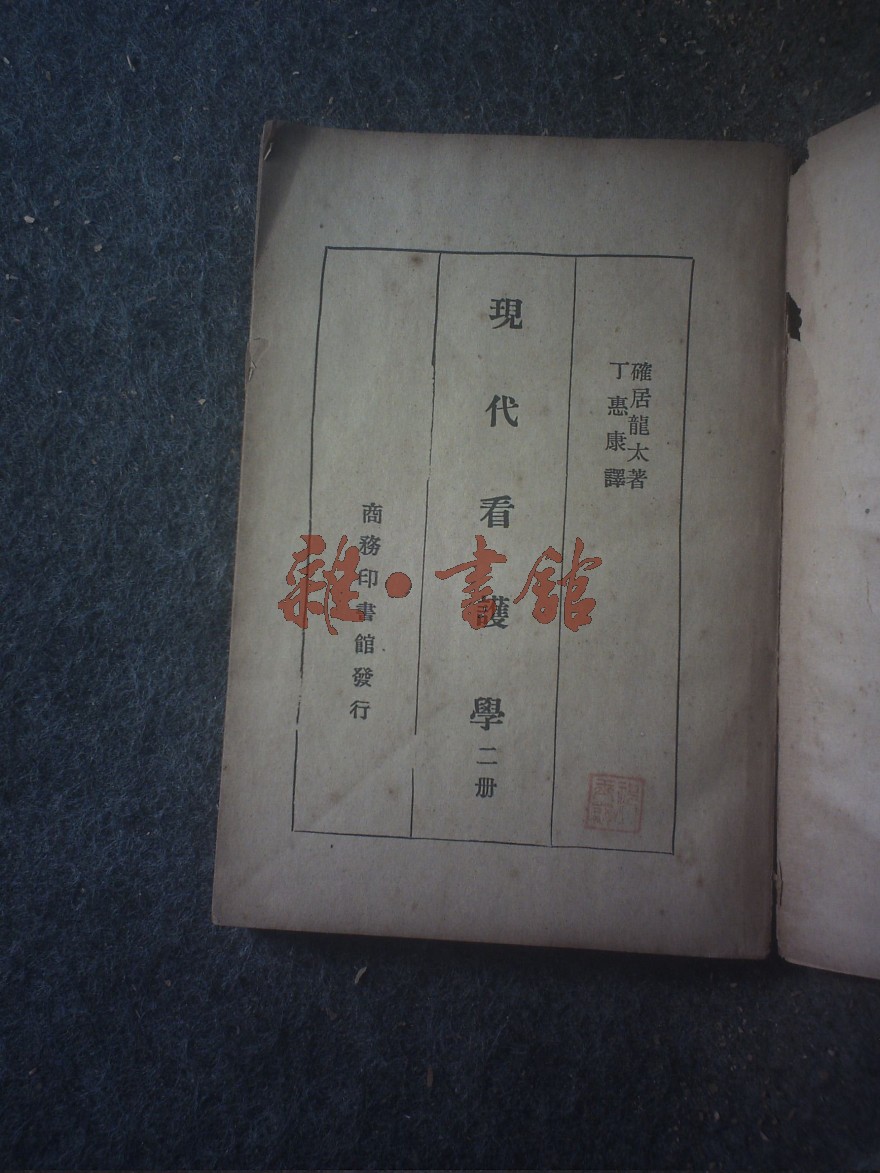 確居龍太著
丁惠康譯
現代看護學二册
商務印書館發行
雜·書館